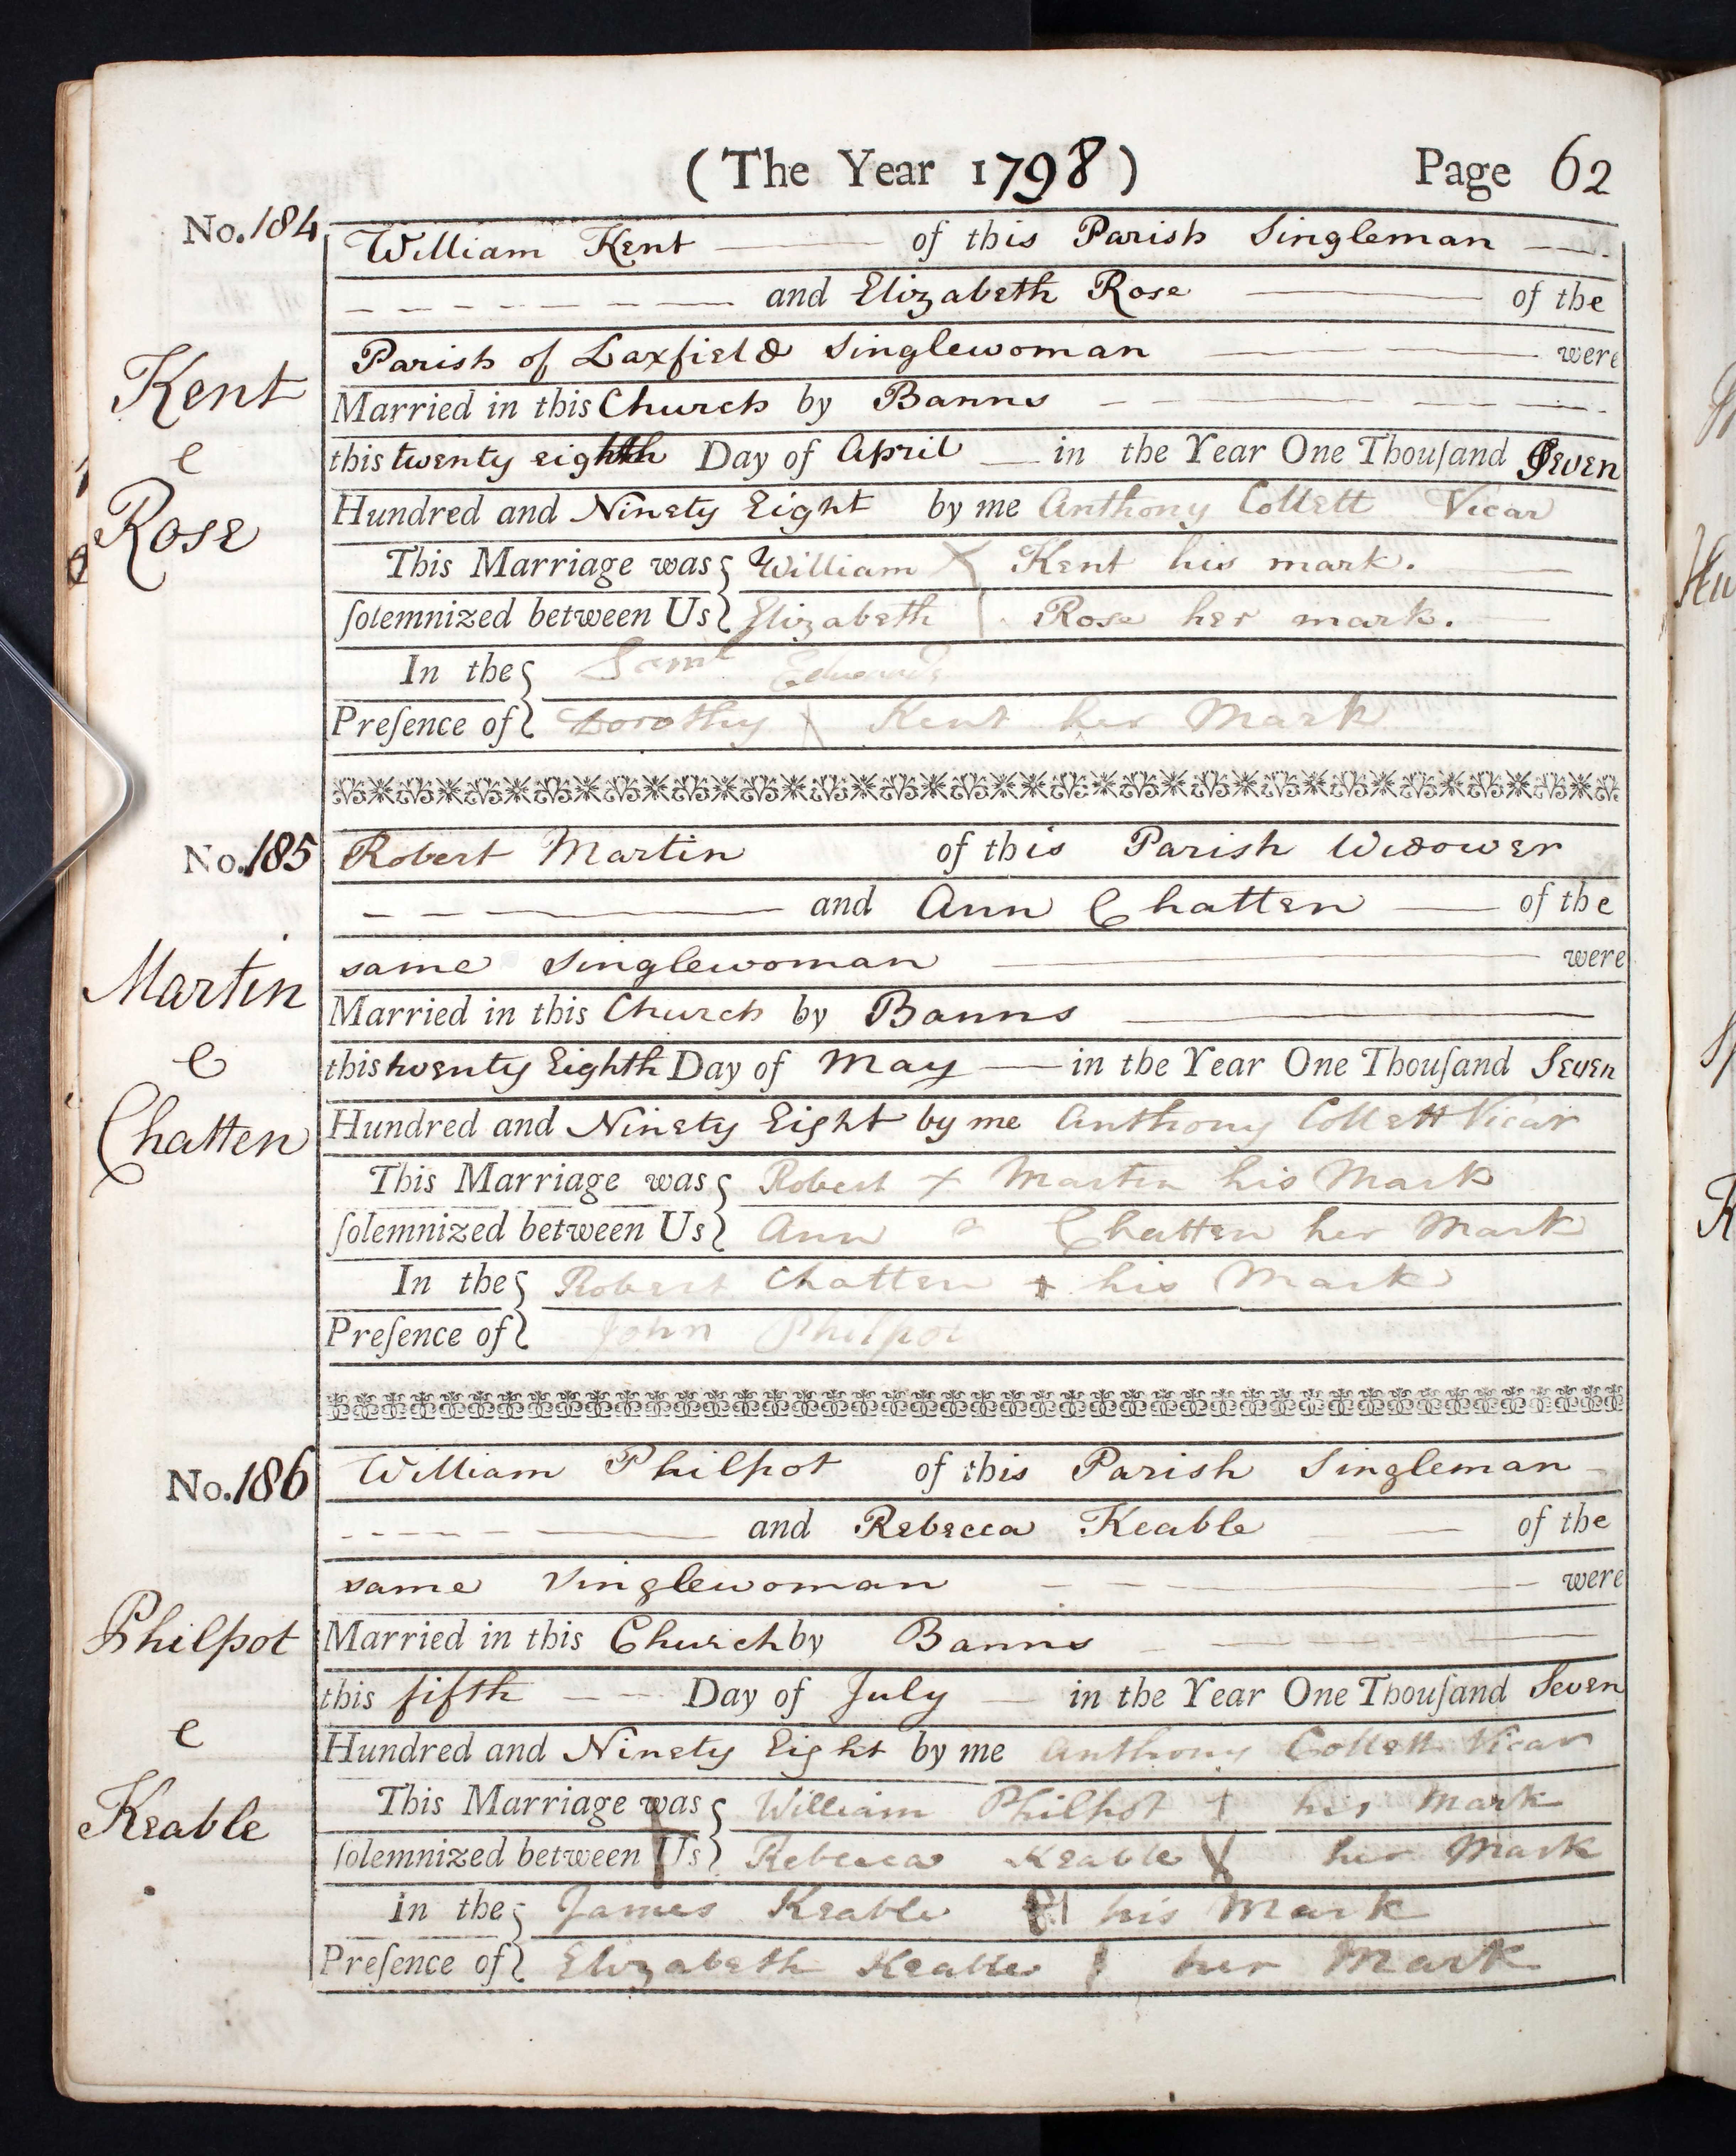 (The Year 1798) Page 62
No. 184
William Kent of this Parish Singleman
and Elizabeth Rose of the
Parish of Laxfield Singlewoman were
Married in this Church by Banns
this twenty eighth Day of April in the Year One Thouſand Seven
Hundred and Ninety Eight by me Anthony Collett Vicar
This Marriage was William X Kent his mark.
ſolemnized between Us Elizabeth | Rose her mark.
In the Saml Edwards
Preſence of Dorothy \ Kent her Mark
Kent
&
Rose
No. 185
Robert Martin of this Parish Widower
and Ann Chatten of the
same Singlewoman were
Married in this Church by Banns
this twenty Eighth Day of May in the Year One Thouſand Seven
Hundred and Ninety Eight by me Anthony Collett Vicar
This Marriage was Robert + Martin his Mark
ſolemnized between Us Ann Chatten her Mark
In the Robert Chatten + his Mark
Preſence of John Philpot
Martin
&
Chatten
No. 186
William Philpot of this Parish Singleman
and Rebecca Keable of the
same Singlewoman were
Married in this Church by Banns
this fifth Day of July in the Year One Thouſand Seven
Hundred and Ninety Eight by me Anthony Collett Vicar
This Marriage was William Philpot + his Mark
ſolemnized between Us Rebecca Keable X her Mark
In the James Keable his Mark
Preſence of Elizabeth Keable her Mark
Philpot
&
Keable